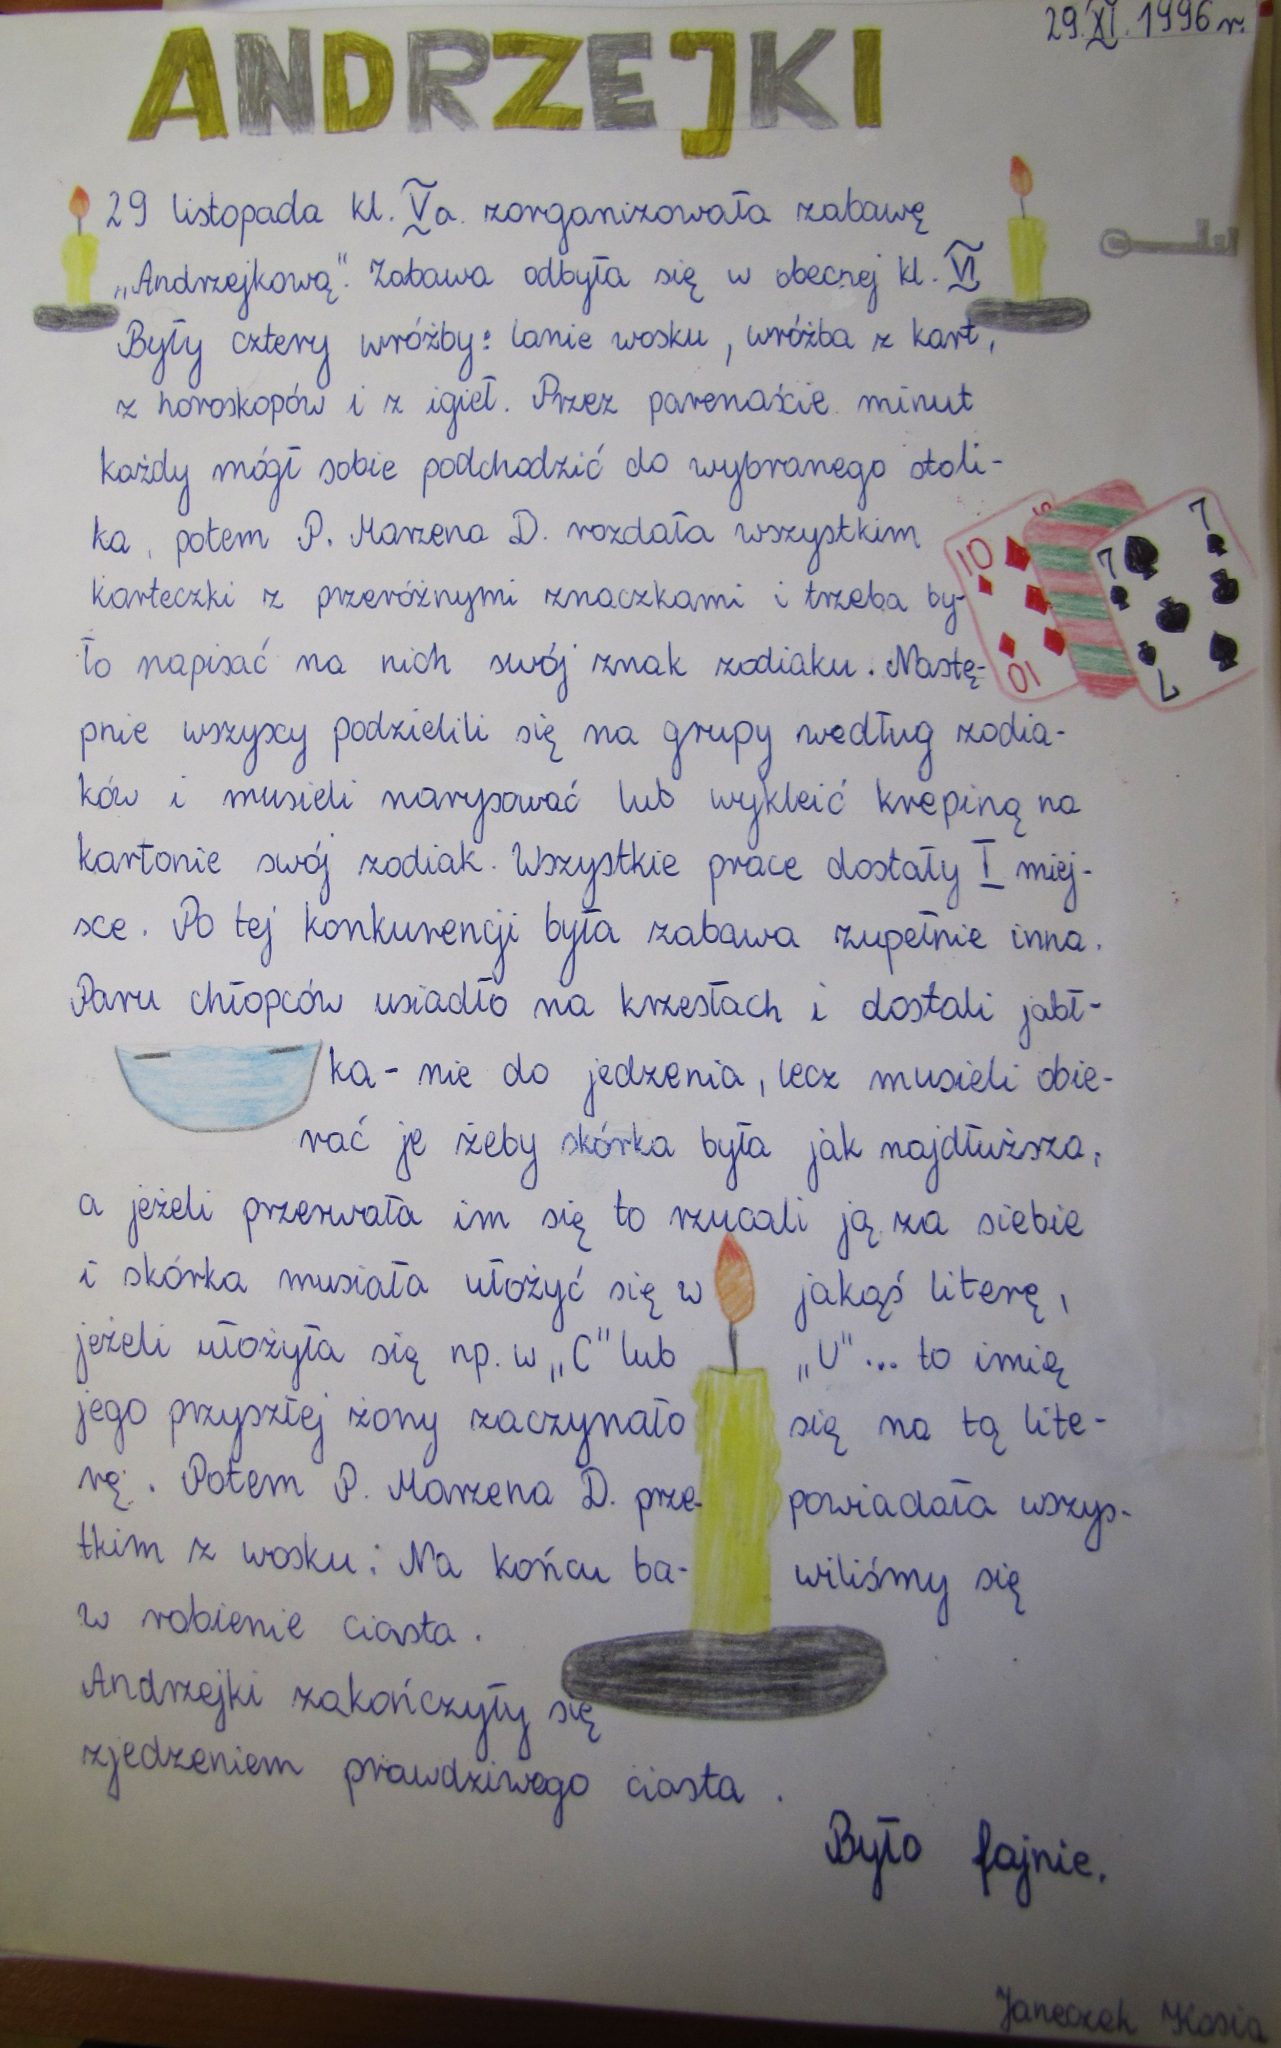 29.XI.1996 r.
ANDRZEJKI
29 listopada kl. Va zorganizowała zabawę
„Andrzejkową”. Zabawa odbyła się w obecnej kl. VI
Były cztery wróżby: lanie wosku, wróżba z kart,
z horoskopów i z igieł. Przez parenaście minut
każdy mógł sobie podchodzić do wybranego stoli-
ka, potem P. Marzena D. rozdała wszystkim
karteczki z przeróżnymi znaczkami i trzeba by-
ło napisać na nich swój znak zodiaku. Nastę-
pnie wszyscy podzielili się na grupy według zodia-
ków i musieli narysować lub wykleić krepiną na
kartonie swój zodiak. Wszystkie prace dostały I miej-
sce. Po tej konkurencji była zabawa zupełnie inna.
Paru chłopców usiadło na krzesłach i dostali jabł-
ka - nie do jedzenia, lecz musieli obie-
rać je żeby skórka była jak najdłuższa,
a jeżeli przerwała im się to rzucali ją za siebie
i skórka musiała ułożyć się w jakąś literę,
jeżeli ułożyła się np. w „C” lub „U”... to imię
jego przyszłej żony zaczynało się na tą lite-
rę. Potem P. Marzena D. prze- powiadała wszys-
tkim z wosku. Na końcu ba- wiliśmy się
w robienie ciasta.
Andrzejki zakończyły się
zjedzeniem prawdziwego ciasta.
Było fajnie.
Janeczek Kasia
10
10
7
7
7